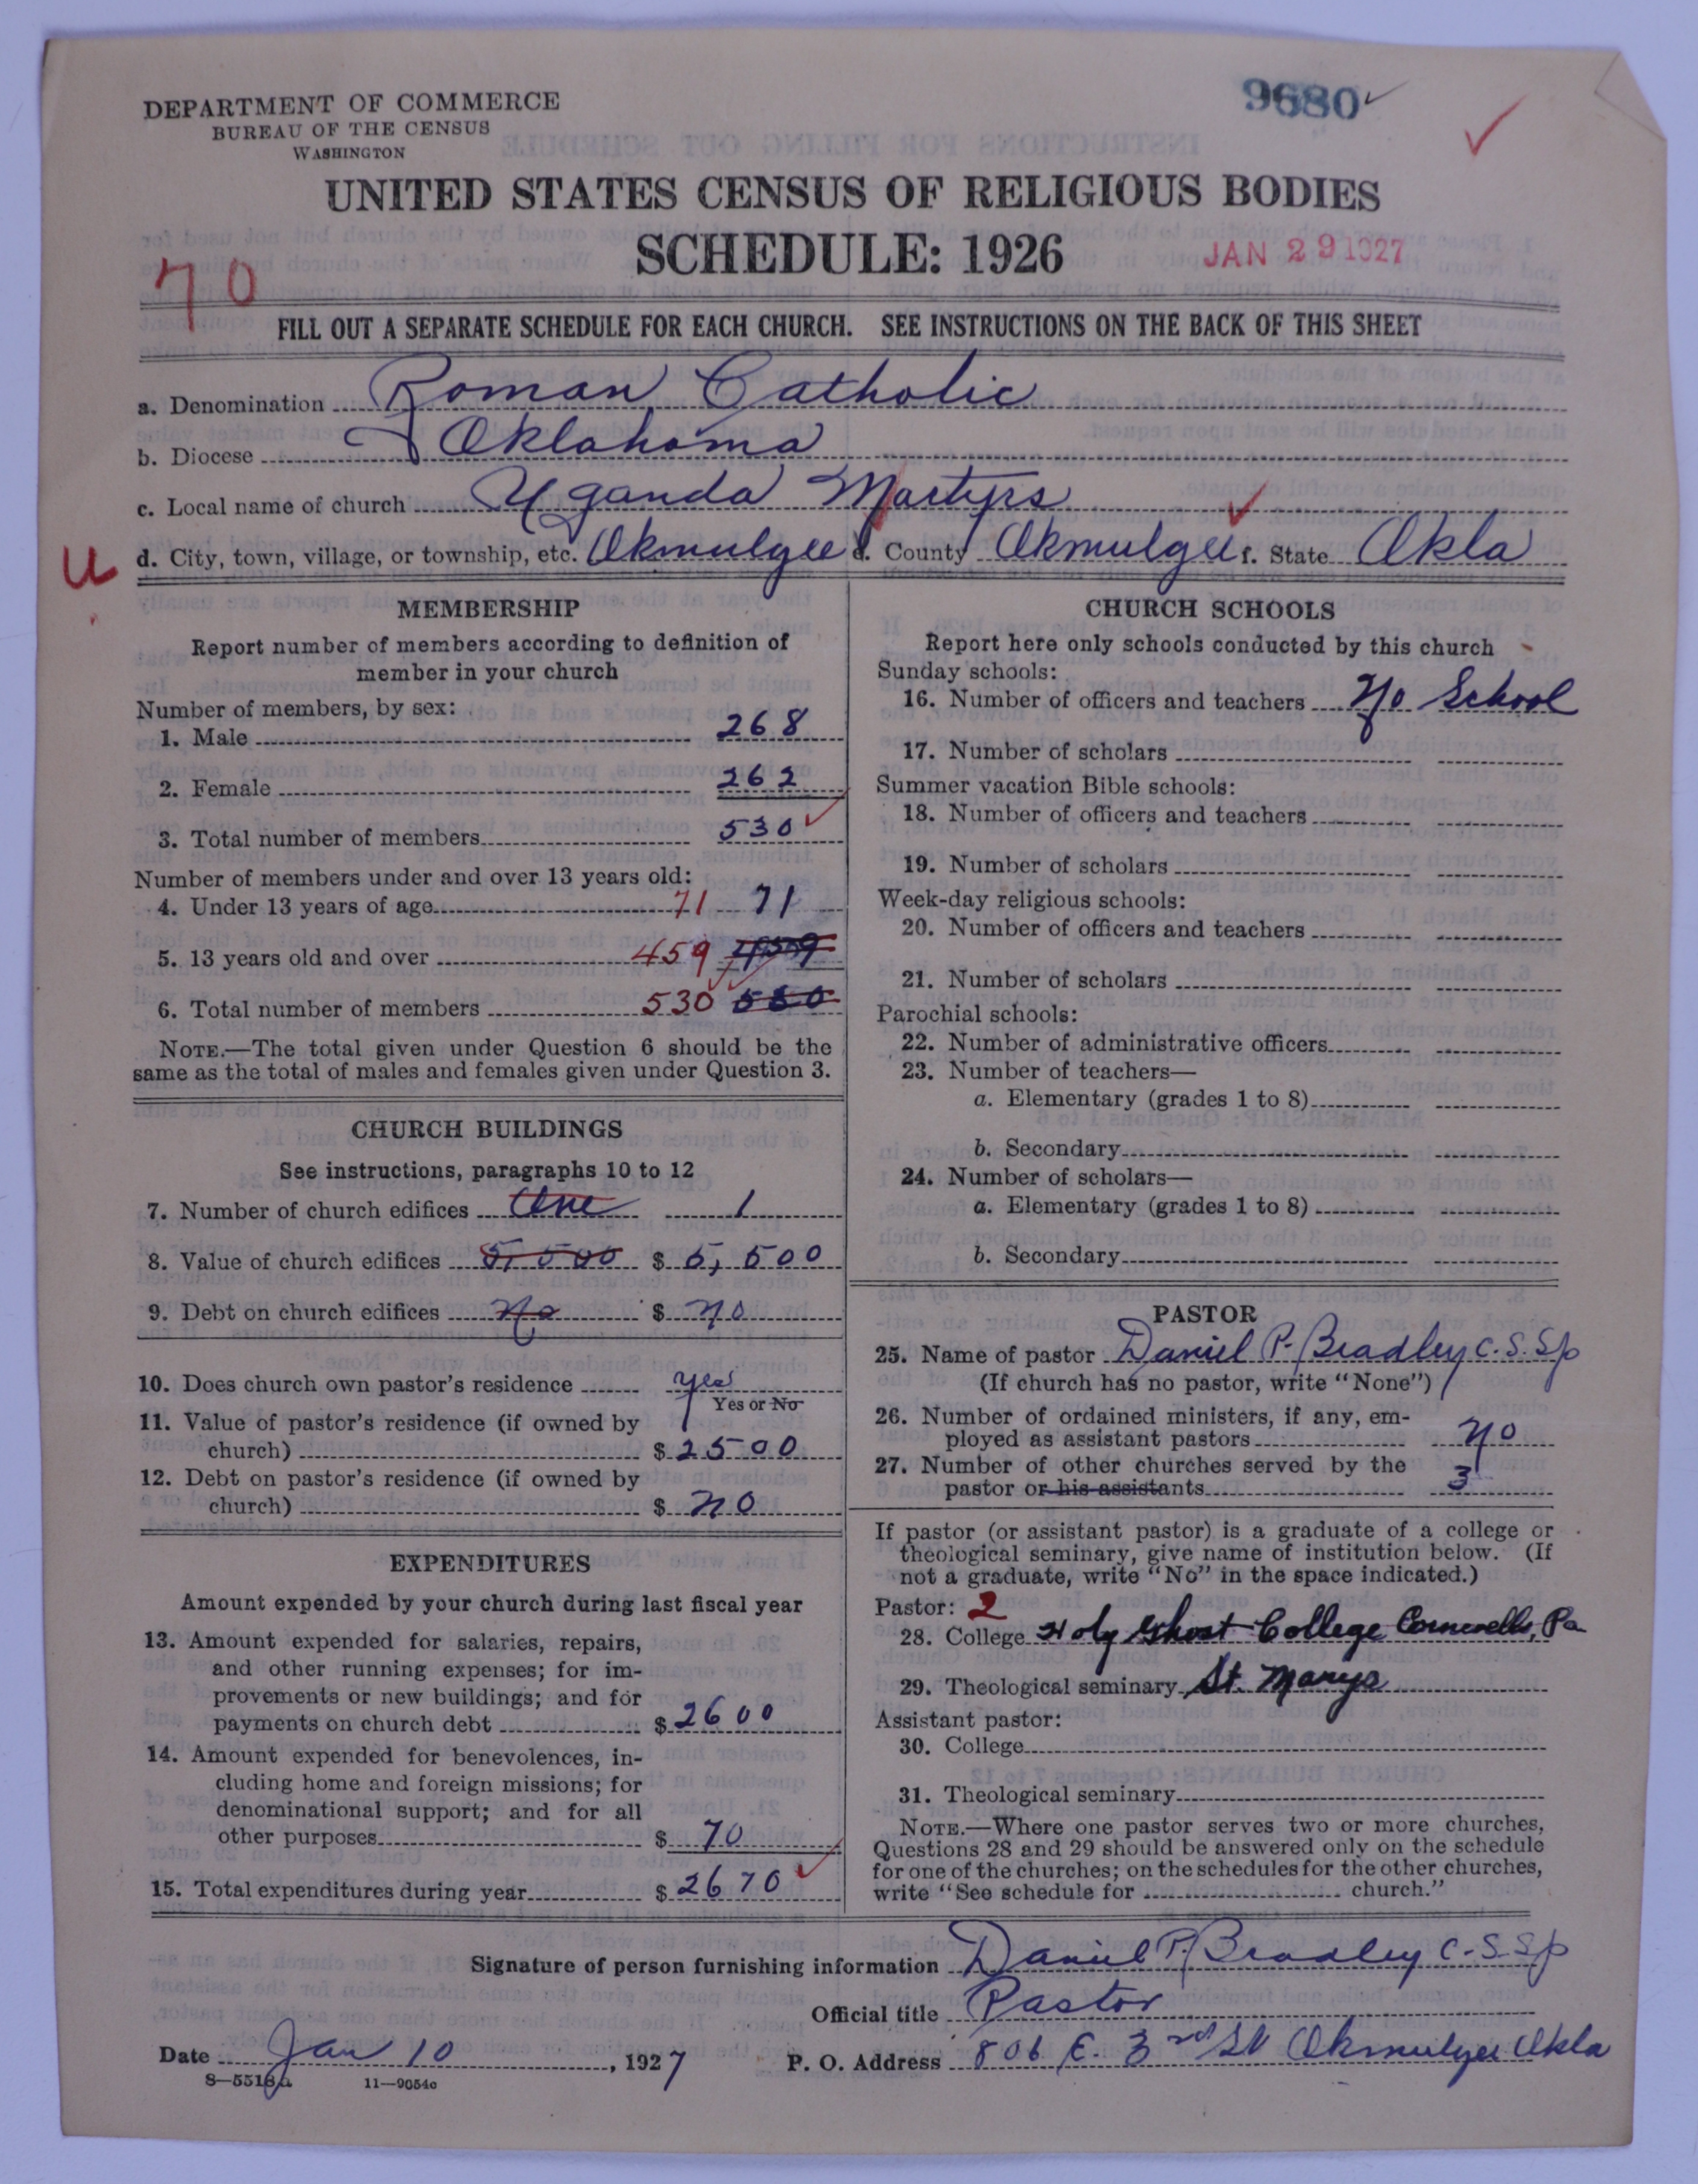 DEPARTMENT OF COMMERCE
BUREAU OF THE CENSUS
WASHINGTON
9680
UNITED STATES CENSUS OF RELIGIOUS BODIES
SCHEDULE: 1926
JAN 29 1927
70
FILL OUT A SEPARATE SCHEDULE FOR EACH CHURCH. SEE INSTRUCTIONS ON THE BACK OF THIS SHEET
a. Denomination Roman Catholic
b. Diocese Oklahoma
c. Local name of church Uganda Martyrs
u d. City, town, village, or township, etc. Okmulgee e. County Okmulgee f. State Okla
MEMBERSHIP
Report number of members according to definition of
member in your church
Number of members, by sex:
1. Male 268
2. Female 262
3. Total number of members 530
Number of members under and over 13 years old:
4. Under 13 years of age 71 71
5. 13 years old and over 459 459
6. Total number of members 530 530
NOTE.—The total given under Question 6 should be the
same as the total of males and females given under Question 3.
CHURCH BUILDINGS
See instructions, paragraphs 10 to 12
7. Number of church edifices One 1
8. Value of church edifices 5,500 $ 5,500
9. Debt on church edifices No $ no
10. Does church own pastor's residence yes
Yes or No
11. Value of pastor's residence (if owned by
church) $ 2500
12. Debt on pastor's residence (if owned by
church) $ no
EXPENDITURES
Amount expended by your church during last fiscal year
13. Amount expended for salaries, repairs,
and other running expenses; for im-
provements or new buildings; and for
payments on church debt $ 2600
14. Amount expended for benevolences, in-
cluding home and foreign missions; for
denominational support; and for all
other purposes $ 70
15. Total expenditures during year $ 2670
CHURCH SCHOOLS
Report here only schools conducted by this church
Sunday schools:
16. Number of officers and teachers No School
17. Number of scholars
Summer vacation Bible schools:
18. Number of officers and teachers
19. Number of scholars
Week-day religious schools:
20. Number of officers and teachers
21. Number of scholars
Parochial schools:
22. Number of administrative officers
23. Number of teachers—
a. Elementary (grades 1 to 8)
b. Secondary
24. Number of scholars—
a. Elementary (grades 1 to 8)
b. Secondary
PASTOR
25. Name of pastor Daniel P. Bradley C.S.Sp
(If church has no pastor, write "None")
26. Number of ordained ministers, if any, em-
ployed as assistant pastors no
27. Number of other churches served by the
pastor or his assistants 3
If pastor (or assistant pastor) is a graduate of a college or
theological seminary, give name of institution below. (If
not a graduate, write "No" in the space indicated.)
Pastor: 2
28. College Holy Ghost College Cornwells, Pa
29. Theological seminary St. Marys
Assistant pastor:
30. College
31. Theological seminary
NOTE.—Where one pastor serves two or more churches,
Questions 28 and 29 should be answered only on the schedule
for one of the churches; on the schedules for the other churches,
write "See schedule for church."
Signature of person furnishing information Daniel P. Bradley C.S.Sp
Official title Pastor
Date Jan 10, 1927 P. O. Address 806 E. 3rd St Okmulgee Okla
8—5518a 11—9054c